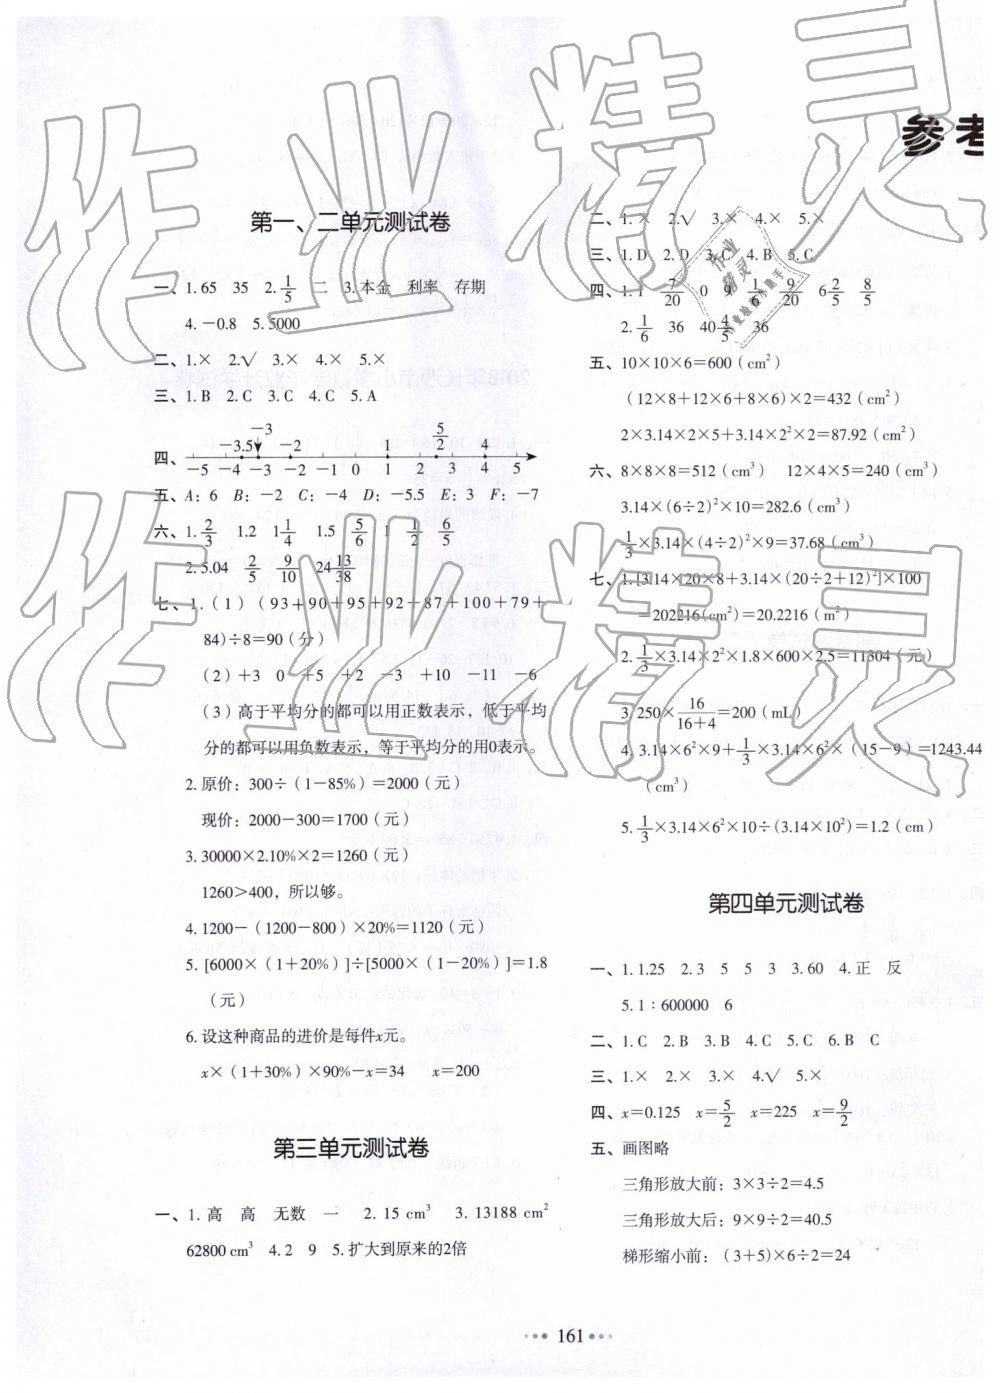 参考
第一、二单元测试卷
一、1.65 35 2.1/5 二 3.本金 利率 存期
4.－0.8 5.5000
二、1.× 2.√ 3.× 4.× 5.×
三、1.B 2.C 3.C 4.C 5.A
四、
－3
－3.5 －2 1 5/2 4
－5 －4 －3 －2 －1 0 1 2 3 4 5
五、A：6 B：－2 C：－4 D：－5.5 E：3 F：－7
六、1.2/3 1.2 1 1/4 1.5 5/6 1 1/2 6/5
2.5.04 2/5 9/10 24 13/38
七、1.（1）（93＋90＋95＋92＋87＋100＋79＋
84)÷8＝90（分）
（2）＋3 0 ＋5 ＋2 －3 ＋10 －11 －6
（3）高于平均分的都可以用正数表示，低于平均
分的都可以用负数表示，等于平均分的用0表示。
2.原价：300÷（1－85%）＝2000（元）
现价：2000－300＝1700（元）
3.30000×2.10%×2＝1260（元）
1260＞400，所以够。
4.1200－（1200－800）×20%＝1120（元）
5.[6000×（1＋20%）]÷[5000×（1－20%）]＝1.8
（元）
6.设这种商品的进价是每件x元。
x×（1＋30%）×90%－x＝34 x＝200
第三单元测试卷
一、1.高 高 无数 一 2.15 cm³ 3.13188 cm²
62800 cm³ 4.2 9 5.扩大到原来的2倍
二、1.× 2.√ 3.× 4.× 5.×
三、1.D 2.D 3.C 4.B 5.C
四、1.1 7/20 0 9 1/6 9/20 6 2/5 8/5
2.1/6 36 40 4/5 36
五、10×10×6＝600（cm²）
（12×8＋12×6＋8×6）×2＝432（cm²）
2×3.14×2×5＋3.14×2²×2＝87.92（cm²）
六、8×8×8＝512（cm³） 12×4×5＝240（cm³）
3.14×(6÷2)²×10＝282.6（cm³）
1/3×3.14×(4÷2)²×9＝37.68（cm³）
七、1.[3.14×20×8＋3.14×(20÷2＋12)²]×100
＝202216(cm²)＝20.2216（m²）
2.1/3×3.14×2²×1.8×600×2.5＝11304（元）
3.250×16/16＋4＝200（mL）
4.3.14×6²×9＋1/3×3.14×6²×（15－9）＝1243.44
（cm³）
5.1/3×3.14×6²×10÷(3.14×10²)＝1.2（cm）
第四单元测试卷
一、1.1.25 2.3 5 5 3 3.60 4.正 反
5.1∶600000 6
二、1.C 2.B 3.B 4.C 5.C 6.B C
三、1.× 2.× 3.× 4.√ 5.×
四、x＝0.125 x＝5/2 x＝225 x＝9/2
五、画图略
三角形放大前：3×3÷2＝4.5
三角形放大后：9×9÷2＝40.5
梯形缩小前：（3＋5)×6÷2＝24
161
作业精灵
作业精灵
作业精灵